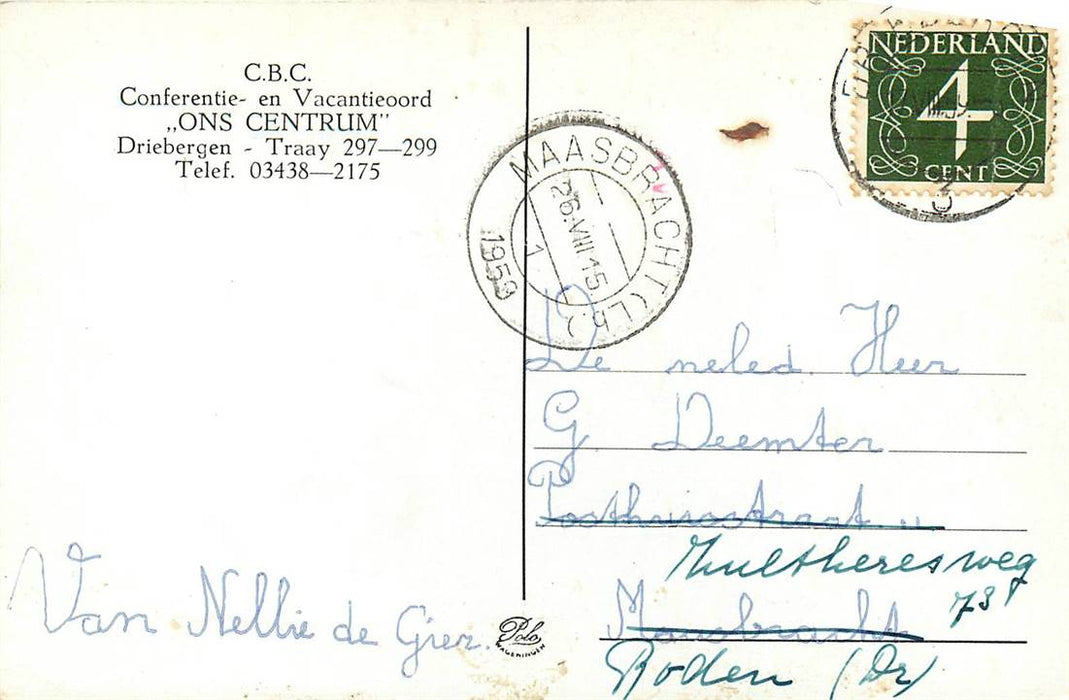 C.B.C.
Conferentie- en Vacantieoord
„ONS CENTRUM"
Driebergen - Traay 297—299
Telef. 03438—2175
NEDERLAND
4
CENT
MAASBRACHT (Lb.)
26.VIII.15
1
1959
3
De neled. Heer
G Deemter
Posthuisstraat 11
73
Maasbracht
Roden (Dr)
Van Nellie de Gier.
Polo
WAGENINGEN